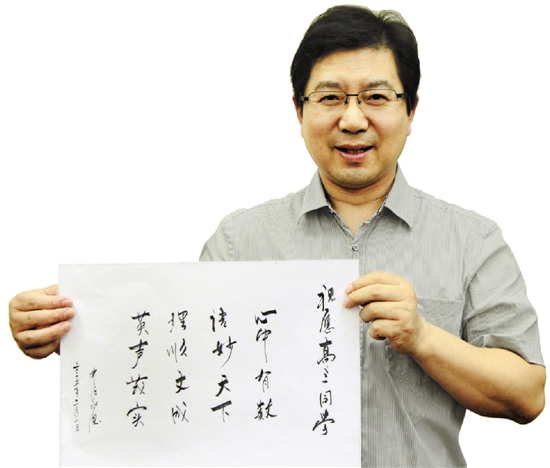 祝愿高三同学
心中有数
语妙天下
理顺文成
英声茂实